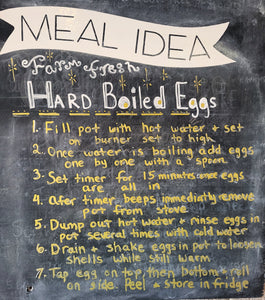 MEAL IDEA
Farm Fresh
HARD Boiled Eggs
1. Fill pot with hot water & set
on burner set to high
2. Once water is boiling add eggs
one by one with a spoon
3. Set timer for 15 minutes once eggs
are all in
4. After timer beeps immediatly remove
pot from stove
5. Dump out hot water & rinse eggs in
pot several times with cold water
6. Drain & shake eggs in pot to loosen
shells while still warm
7. Tap egg on top, then bottom & roll
on side Peel & Store in fridge